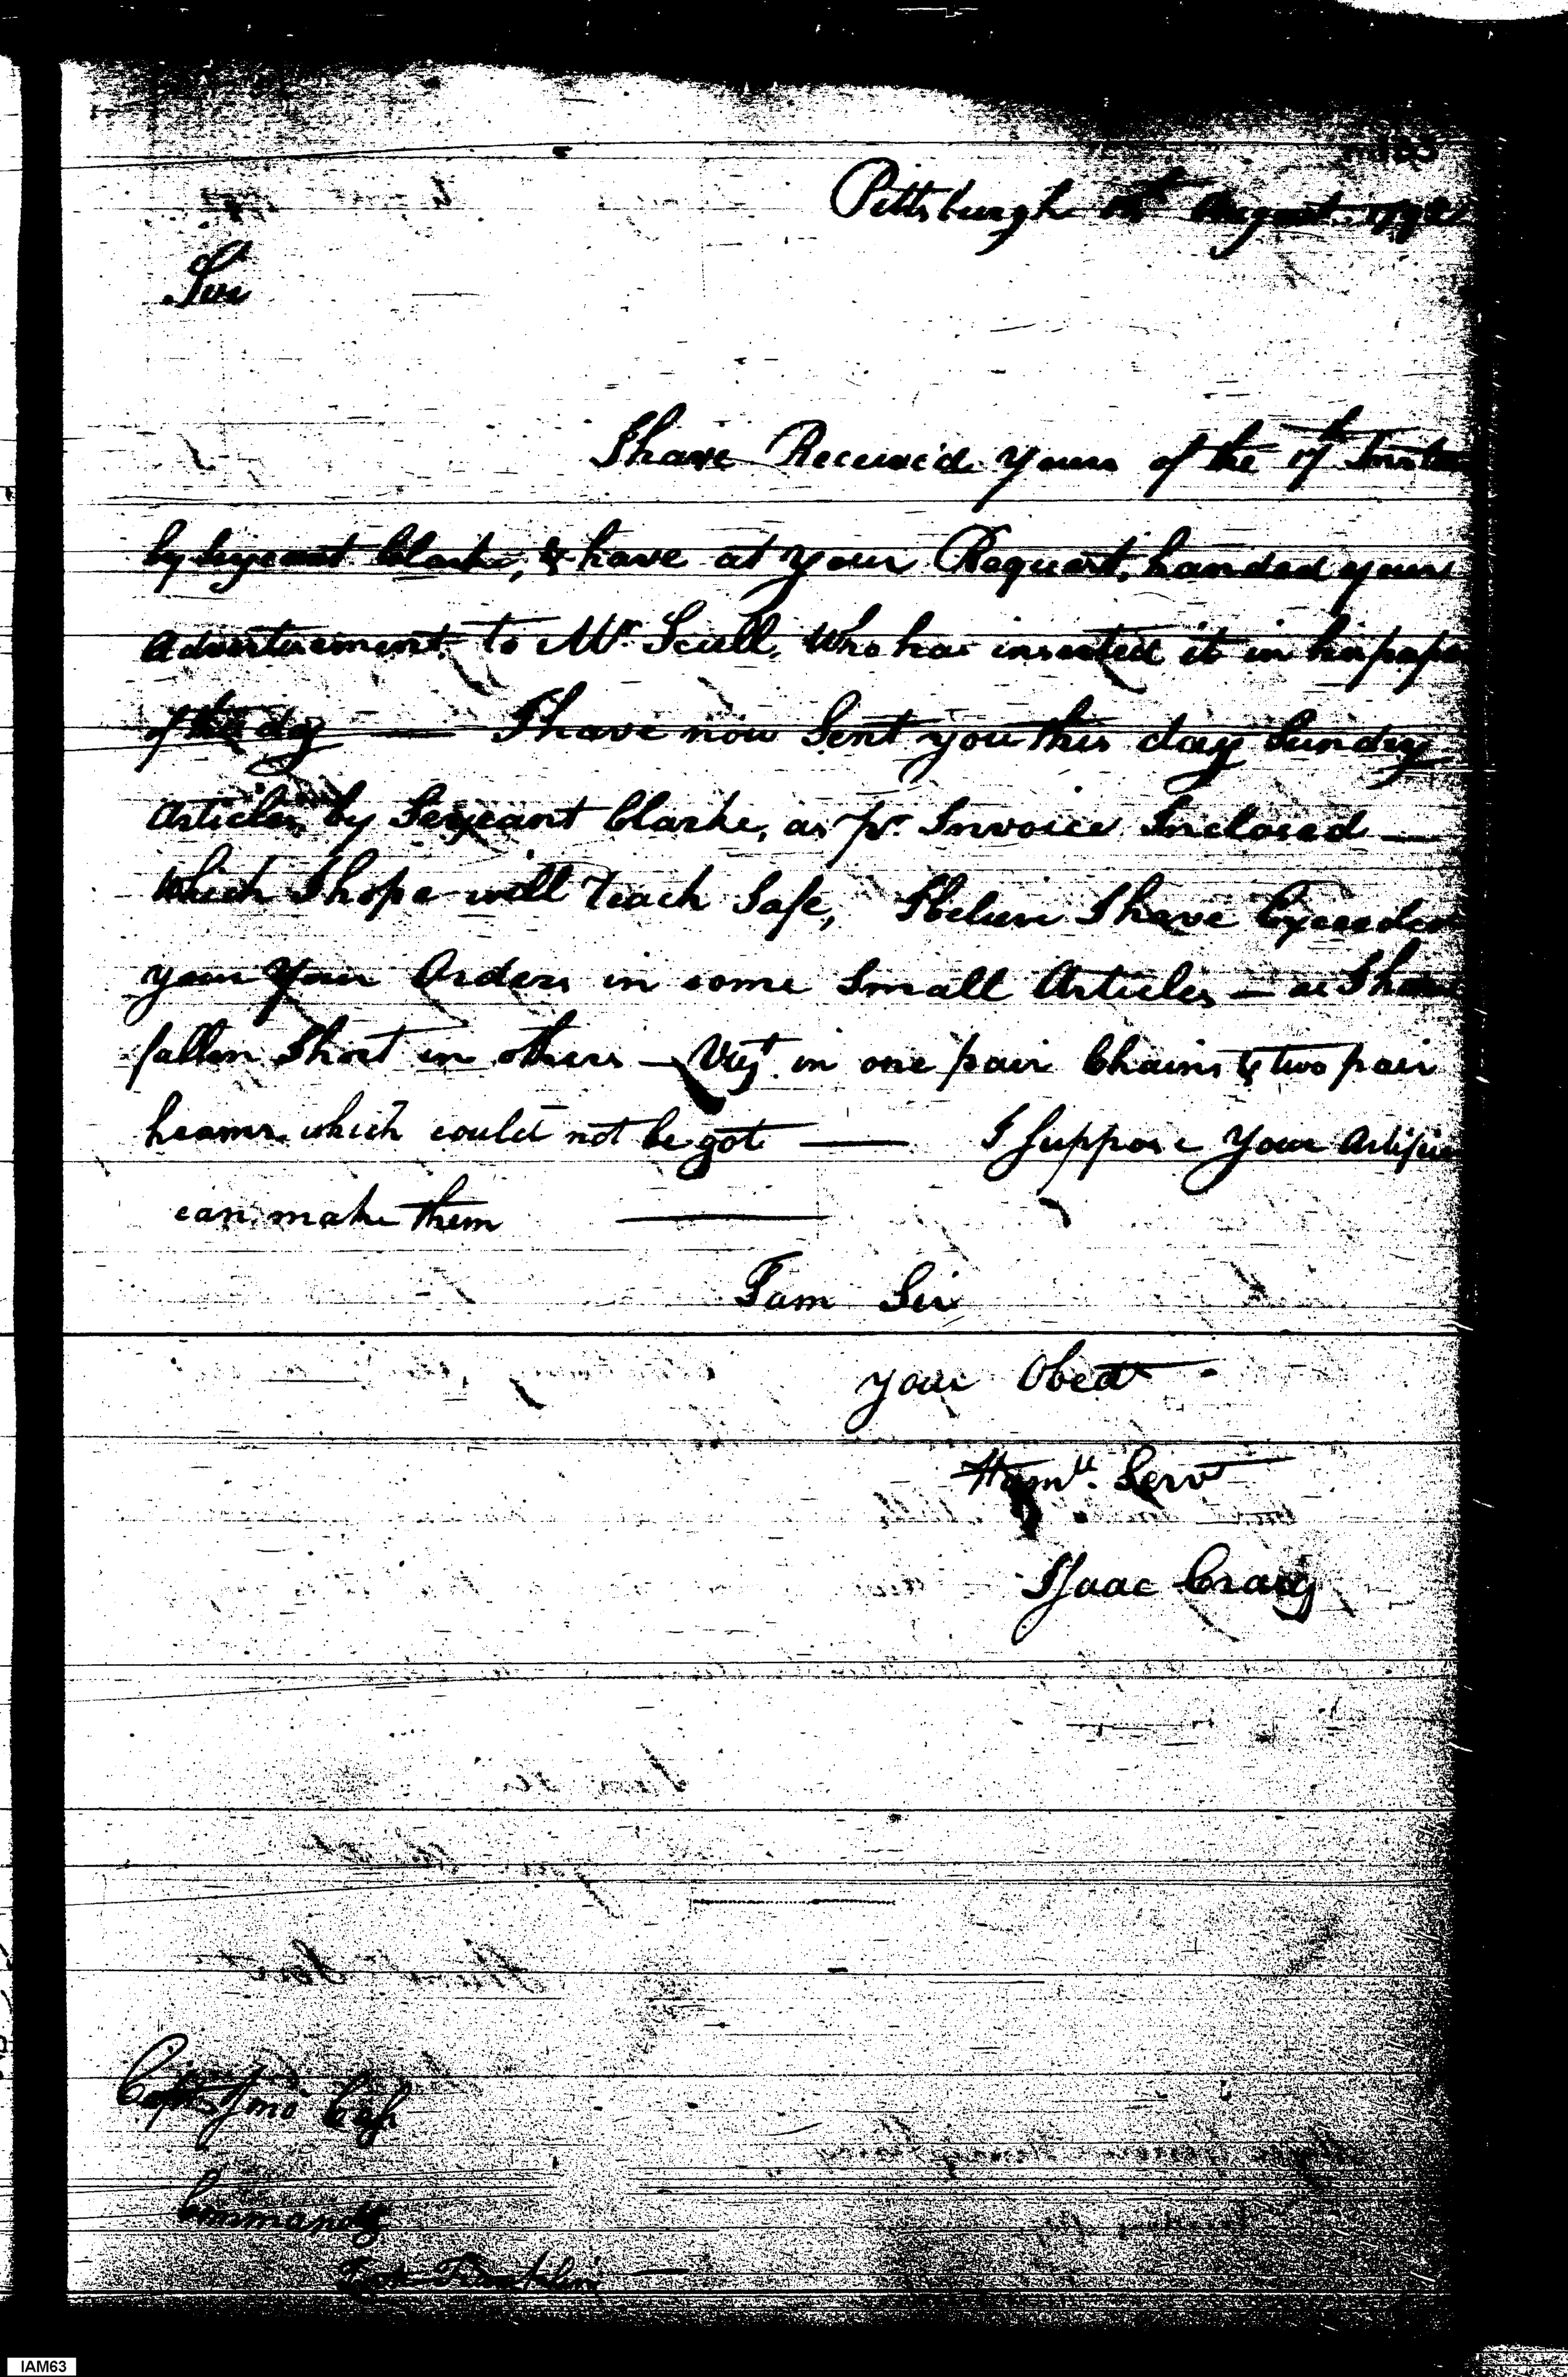 133
Pittsburgh August 1792
Sir
I have Received yours of the 17th Instan
by Sergeant Clarke, & have at your Request, handed your
Advertisement to Mr. Scull, Who has inserted it in his pape
of this day — I have now Sent you this day Sundry
Articles by Sergeant Clarke, as pr. Invoice Inclosed —
Which I hope will reach Safe, I believe I have Exceeded
your Your Orders in some Small Articles — as I have
fallen Short in others — Vizt. in one pair Chains & two pair
heams which could not be got — I Suppose Your Artific
can make them —
I am Sir
your Obedt
Humll. Servt
Isaac Craig
Captn. Jno
Commandg
Fort Franklin —
IAM63